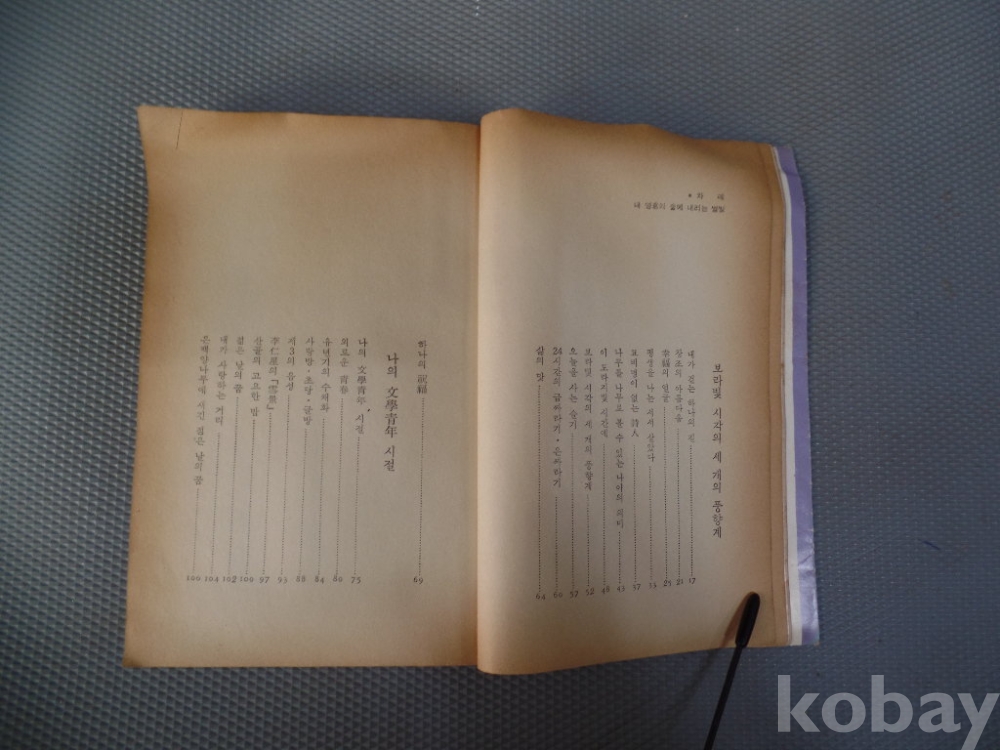 차 례
내 영혼의 숲에 내리는 별빛
보라빛 시각의 세 개의 풍향계
내가 걷는 하나의 길 17
창조의 아름다움 21
幸福의 얼굴 25
평생을 나는 서서 살았다
묘비명이 없는 詩人
나무를 나무로 볼 수 있는 나이의 의미 43
이 보라빛 시간에 48
보라빛 시각의 세 개의 풍향계 52
오늘을 사는 슬기 57
24시간의 금싸라기·은싸라기 60
삶의 맛 64
하나의 記錄 69
나의 文學青年 시절
나의 文學青年 시절 75
외로운 青春 80
유년기의 수채화 84
사랑방·초당·글방 88
제3의 음성 93
李仁星의 97
산골의 고요한 밤 100
젊은 날의 꿈 102
내가 사랑하는 거리 104
은백양나무에 새긴 젊은 날의 꿈 106
kobay